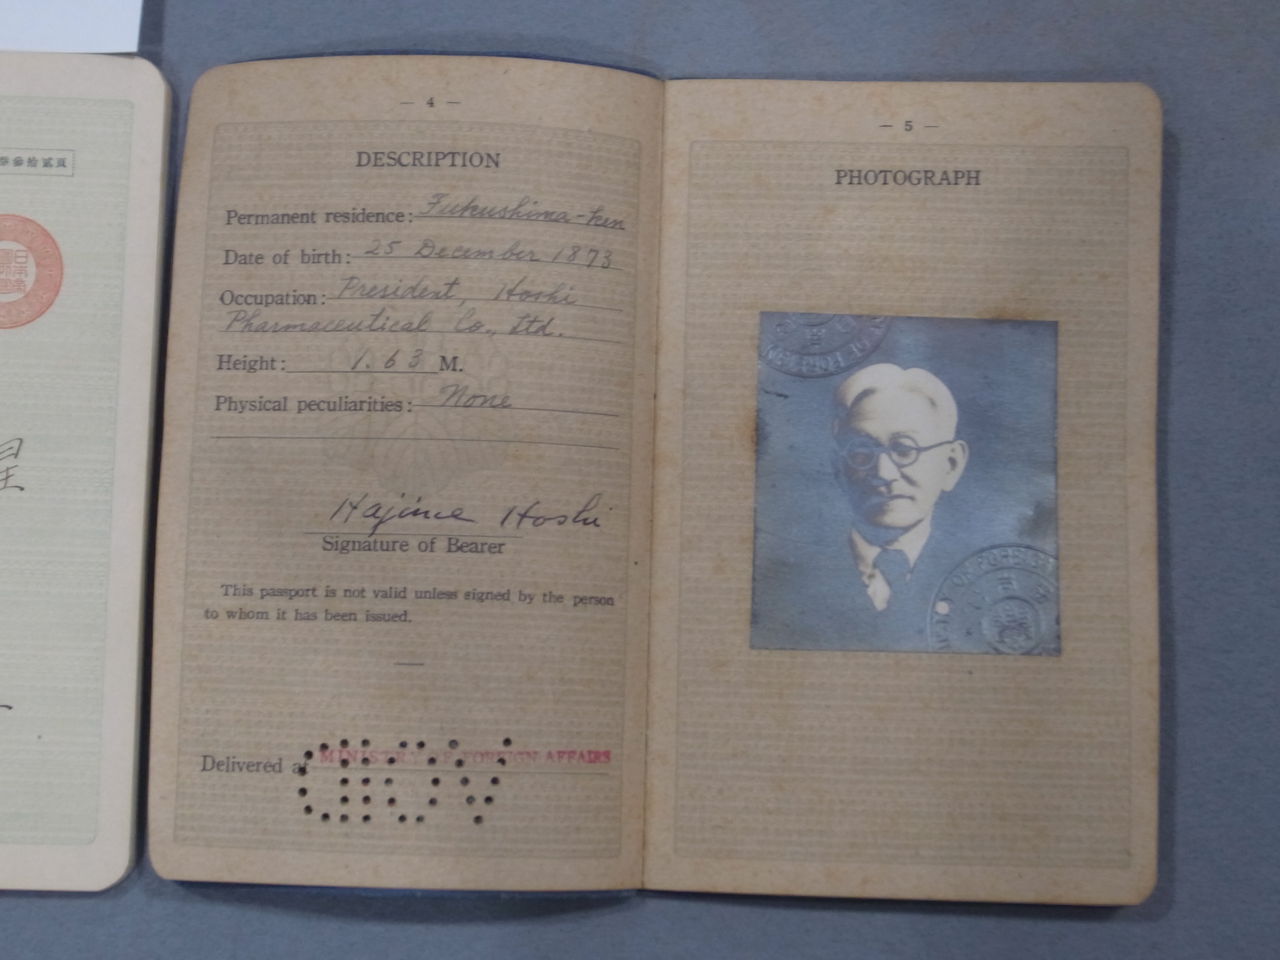 頁貳拾參
星
— 4 —
DESCRIPTION
Permanent residence: Fukushima-Ken
Date of birth: 25 December 1873
Occupation: President, Hoshi
Pharmaceutical Co., Ltd.
Height: 1.63 M.
Physical peculiarities: None
Hajime Hoshi
Signature of Bearer
This passport is not valid unless signed by the person
to whom it has been issued.
Delivered at MINISTRY OF FOREIGN AFFAIRS
VOID
— 5 —
PHOTOGRAPH
OF FOREIGN
OF FOREIGN